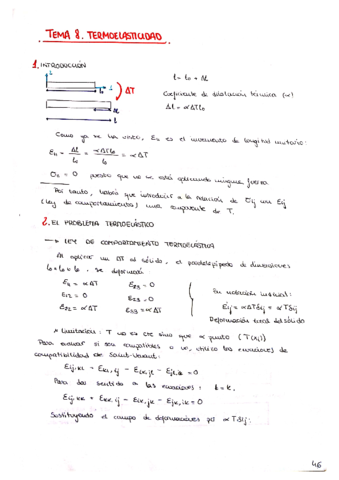 TEMA 8. TERMOELASTICIDAD
1. INTRODUCCIÓN
l = l₀ + Δl
ΔT
Coeficiente de dilatación térmica (α)
Δl = αΔTl₀
Como ya se ha visto, ε₁₁ es el incremento de longitud unitario:
ε₁₁ = Δl/l₀ = αΔTl₀/l₀ = αΔT
puesto que no se está aplicando ninguna fuerza.
Por tanto, habrá que introducir a la relación de σij con εij
(ley de comportamiento) una componente de T.
2. EL PROBLEMA TERMOELÁSTICO
→ LEY DE COMPORTAMIENTO TERMOELÁSTICA
Al aplicar un ΔT al sólido, el paralelepípedo de dimensiones
l₀ × l₀ × l₀, se deformará
ε₁₁ = αΔT
ε₁₂ = 0
ε₂₂ = αΔT
ε₂₃ = 0
ε₃₃ = αΔT
En notación indicial:
εij = αΔTδij = αTδij
Deformación total del sólido
* Limitación: T no es cte sino que α punto (T(xi))
Para evaluar si son compatibles o no, utilizo las ecuaciones de
compatibilidad de Saint-Venant:
εij,kl - εkl,ij - εik,jl - εjl,ik = 0
Para dar sentido a las ecuaciones: l = k.
εij,kk + εkk,ij - εik,jk - εjk,ik = 0
Sustituyendo el campo de deformaciones por αTδij:
46